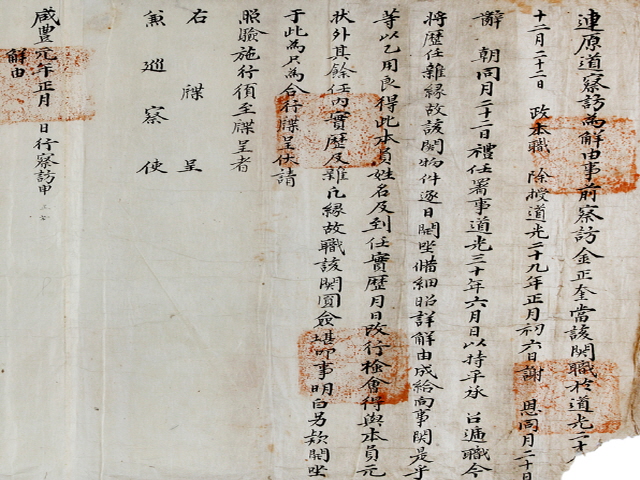 連原道察訪爲解由事前察訪金正奎當該關職於道光二十八
十二月二十二日 政本職 除授道光二十九年正月初六日謝 恩同月二十日
辭 朝同月二十二日禮任署事道光三十年六月日以持平承 召遞職今
將歷任雜緣故該關物件逐日開坐備細昭詳解由成給向事關是乎
等以乙用良得此本員姓名及到任實歷月日改行檢會得與本員元
狀外其餘任內實歷及雜凡緣故職該關圓僉堪叩事明白另款開坐
于此爲只爲合行牒呈伏請
照驗施行須至牒呈者
右 牒 呈
兼 巡 察 使
咸豐元年正月 日行察訪申
解由